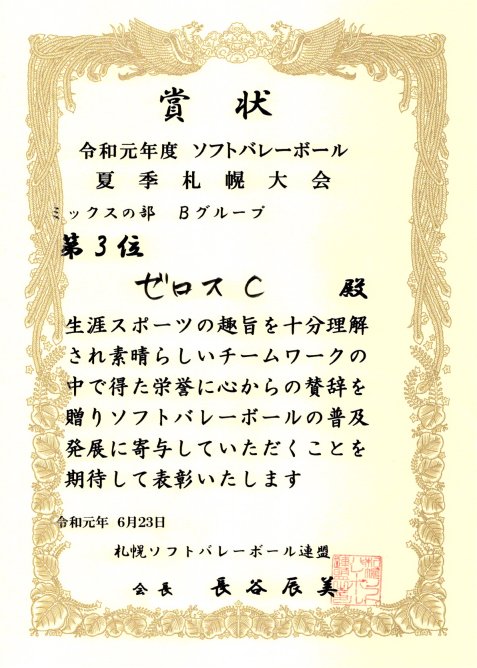 賞状
令和元年度 ソフトバレーボール
夏季札幌大会
ミックスの部 Bグループ
第3位
ゼロスC 殿
生涯スポーツの趣旨を十分理解
され素晴らしいチームワークの
中で得た栄誉に心からの賛辞を
贈りソフトバレーボールの普及
発展に寄与していただくことを
期待して表彰いたします
令和元年 6月23日
札幌ソフトバレーボール連盟
会長 長谷辰美